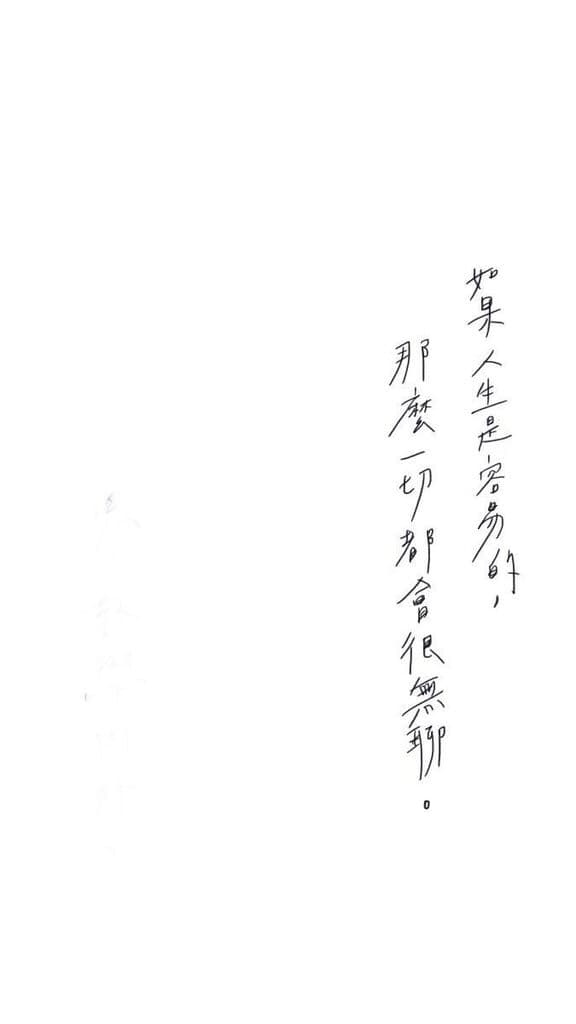 如果人生是容易的，
那麼一切都會很無聊。